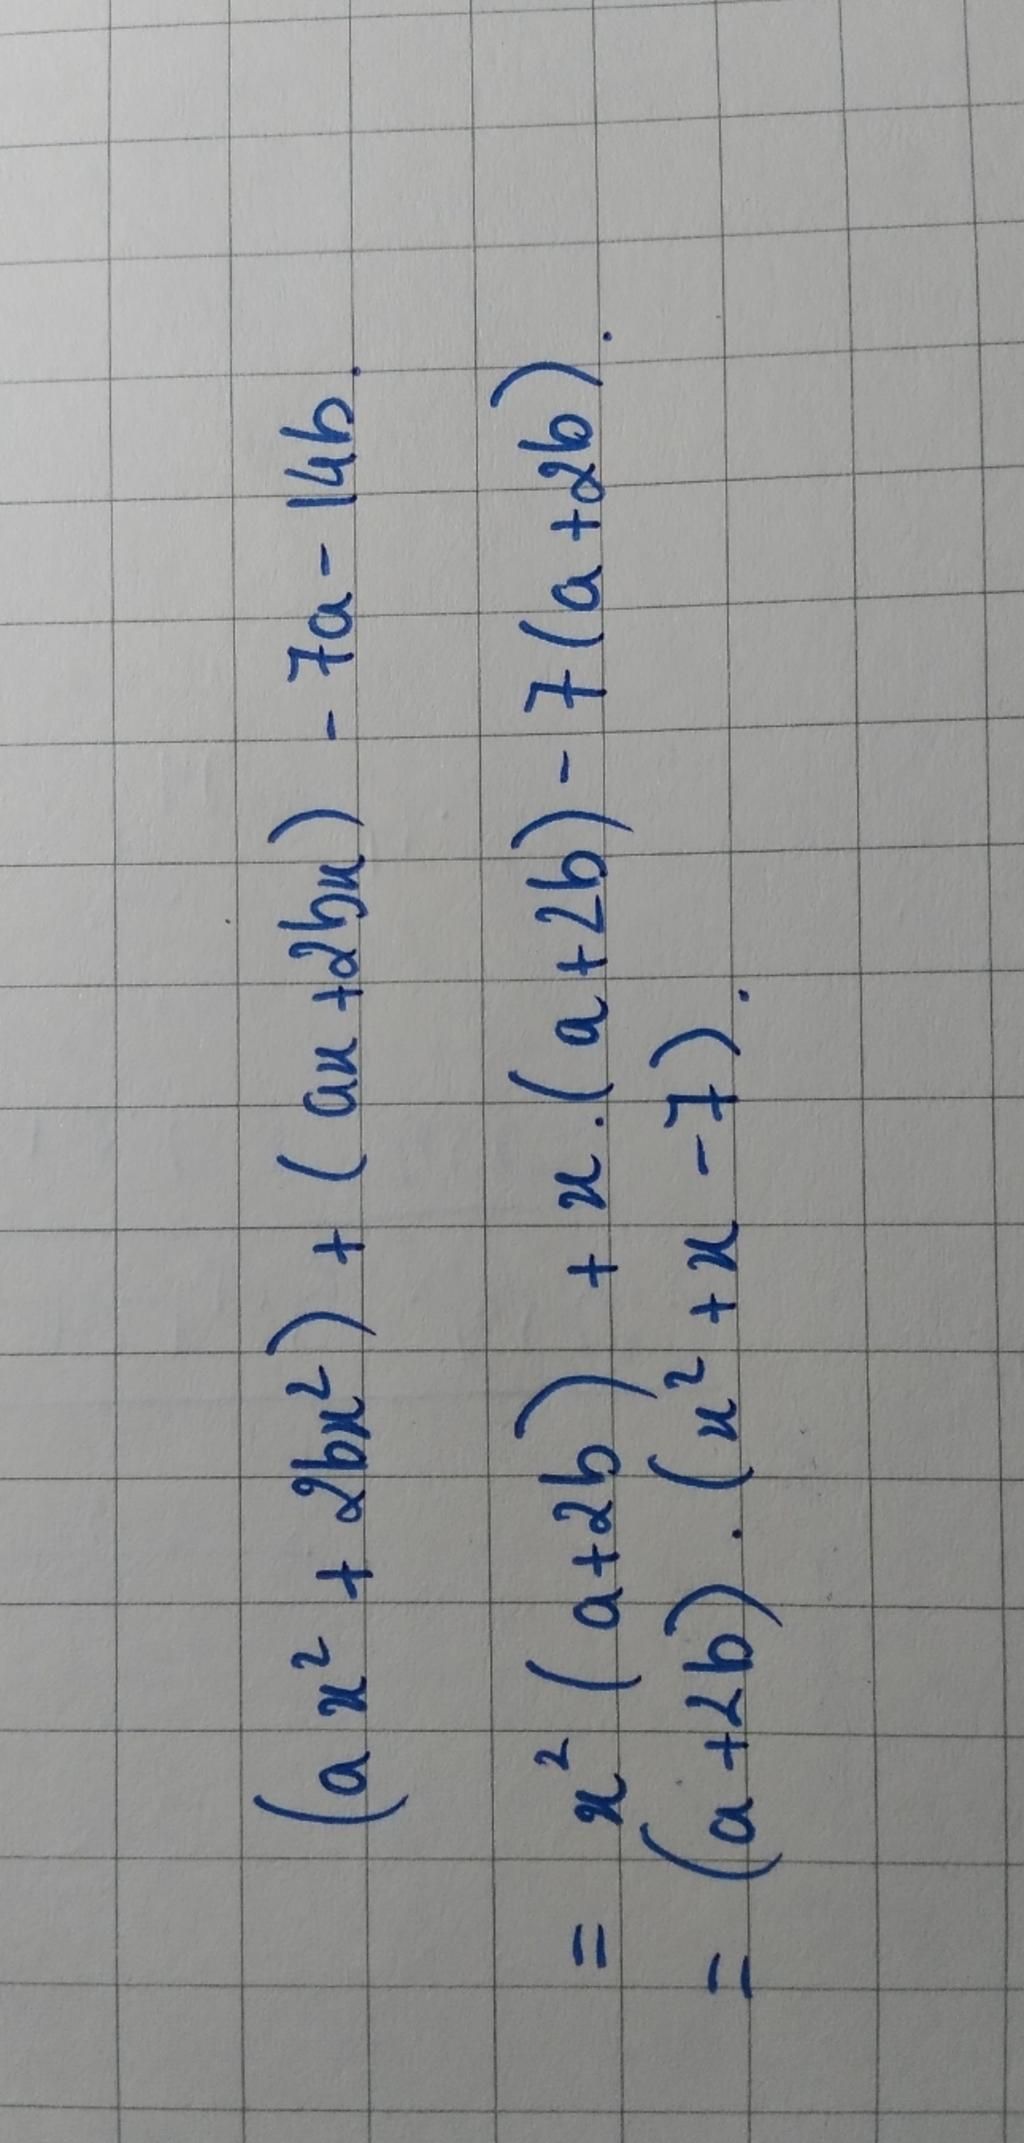 (ax² + 2bx²) + (ax + 2bx) - 7a - 14b.
= x² (a + 2b) + x . (a + 2b) - 7 (a + 2b).
= (a + 2b) . (x² + x - 7).